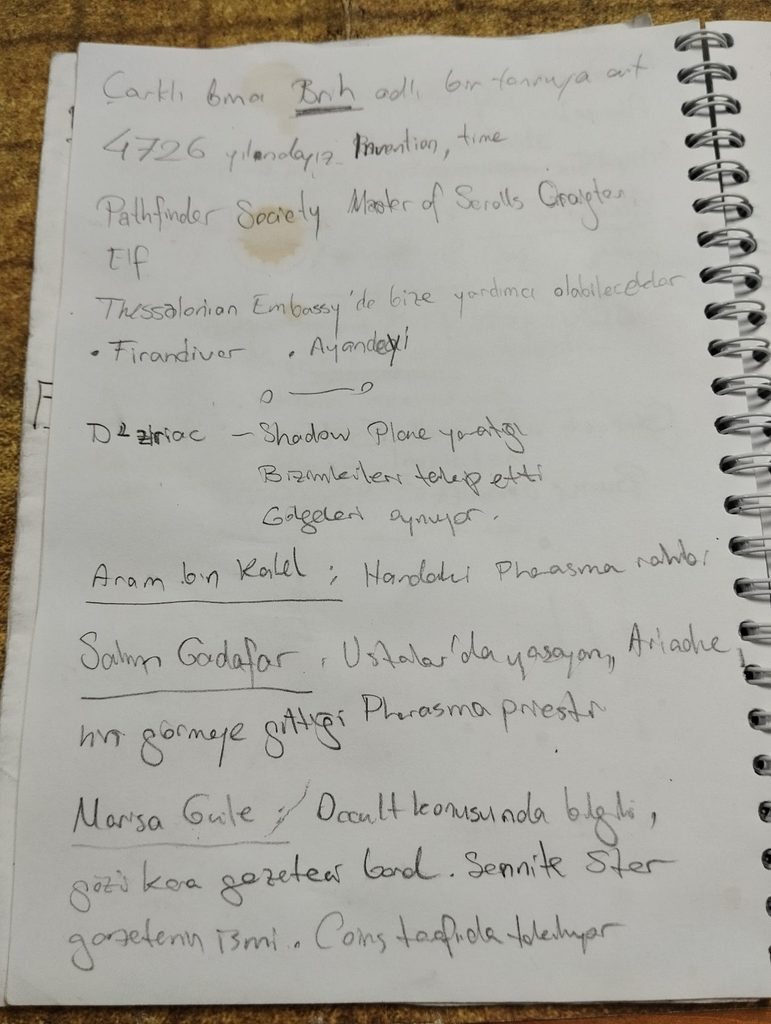 Çarklı bina Brih adlı bir tanrıya ait
4726 yılındayız. Invention, time
Pathfinder Society Master of Scrolls
Elf
Thessalonian Embassy'de bize yardımcı olabilecekler
• Firandiver • Ayandexi
D'ziriac – Shadow Plane yaratığı
Bizimkileri takip etti
Gölgeleri aynıyor.
Aram bin Kalel : Handaki Pharasma rahibi
Salim Gadafar : Ustalar'da yaşayan, Ariadne,
nin görmeye gittiği Pharasma priesti
Marisa Guile : Occult konusunda bilgili,
gözü kara gazeteci bard. Sennite Ster
gazetenin ismi. Coins takılıyor